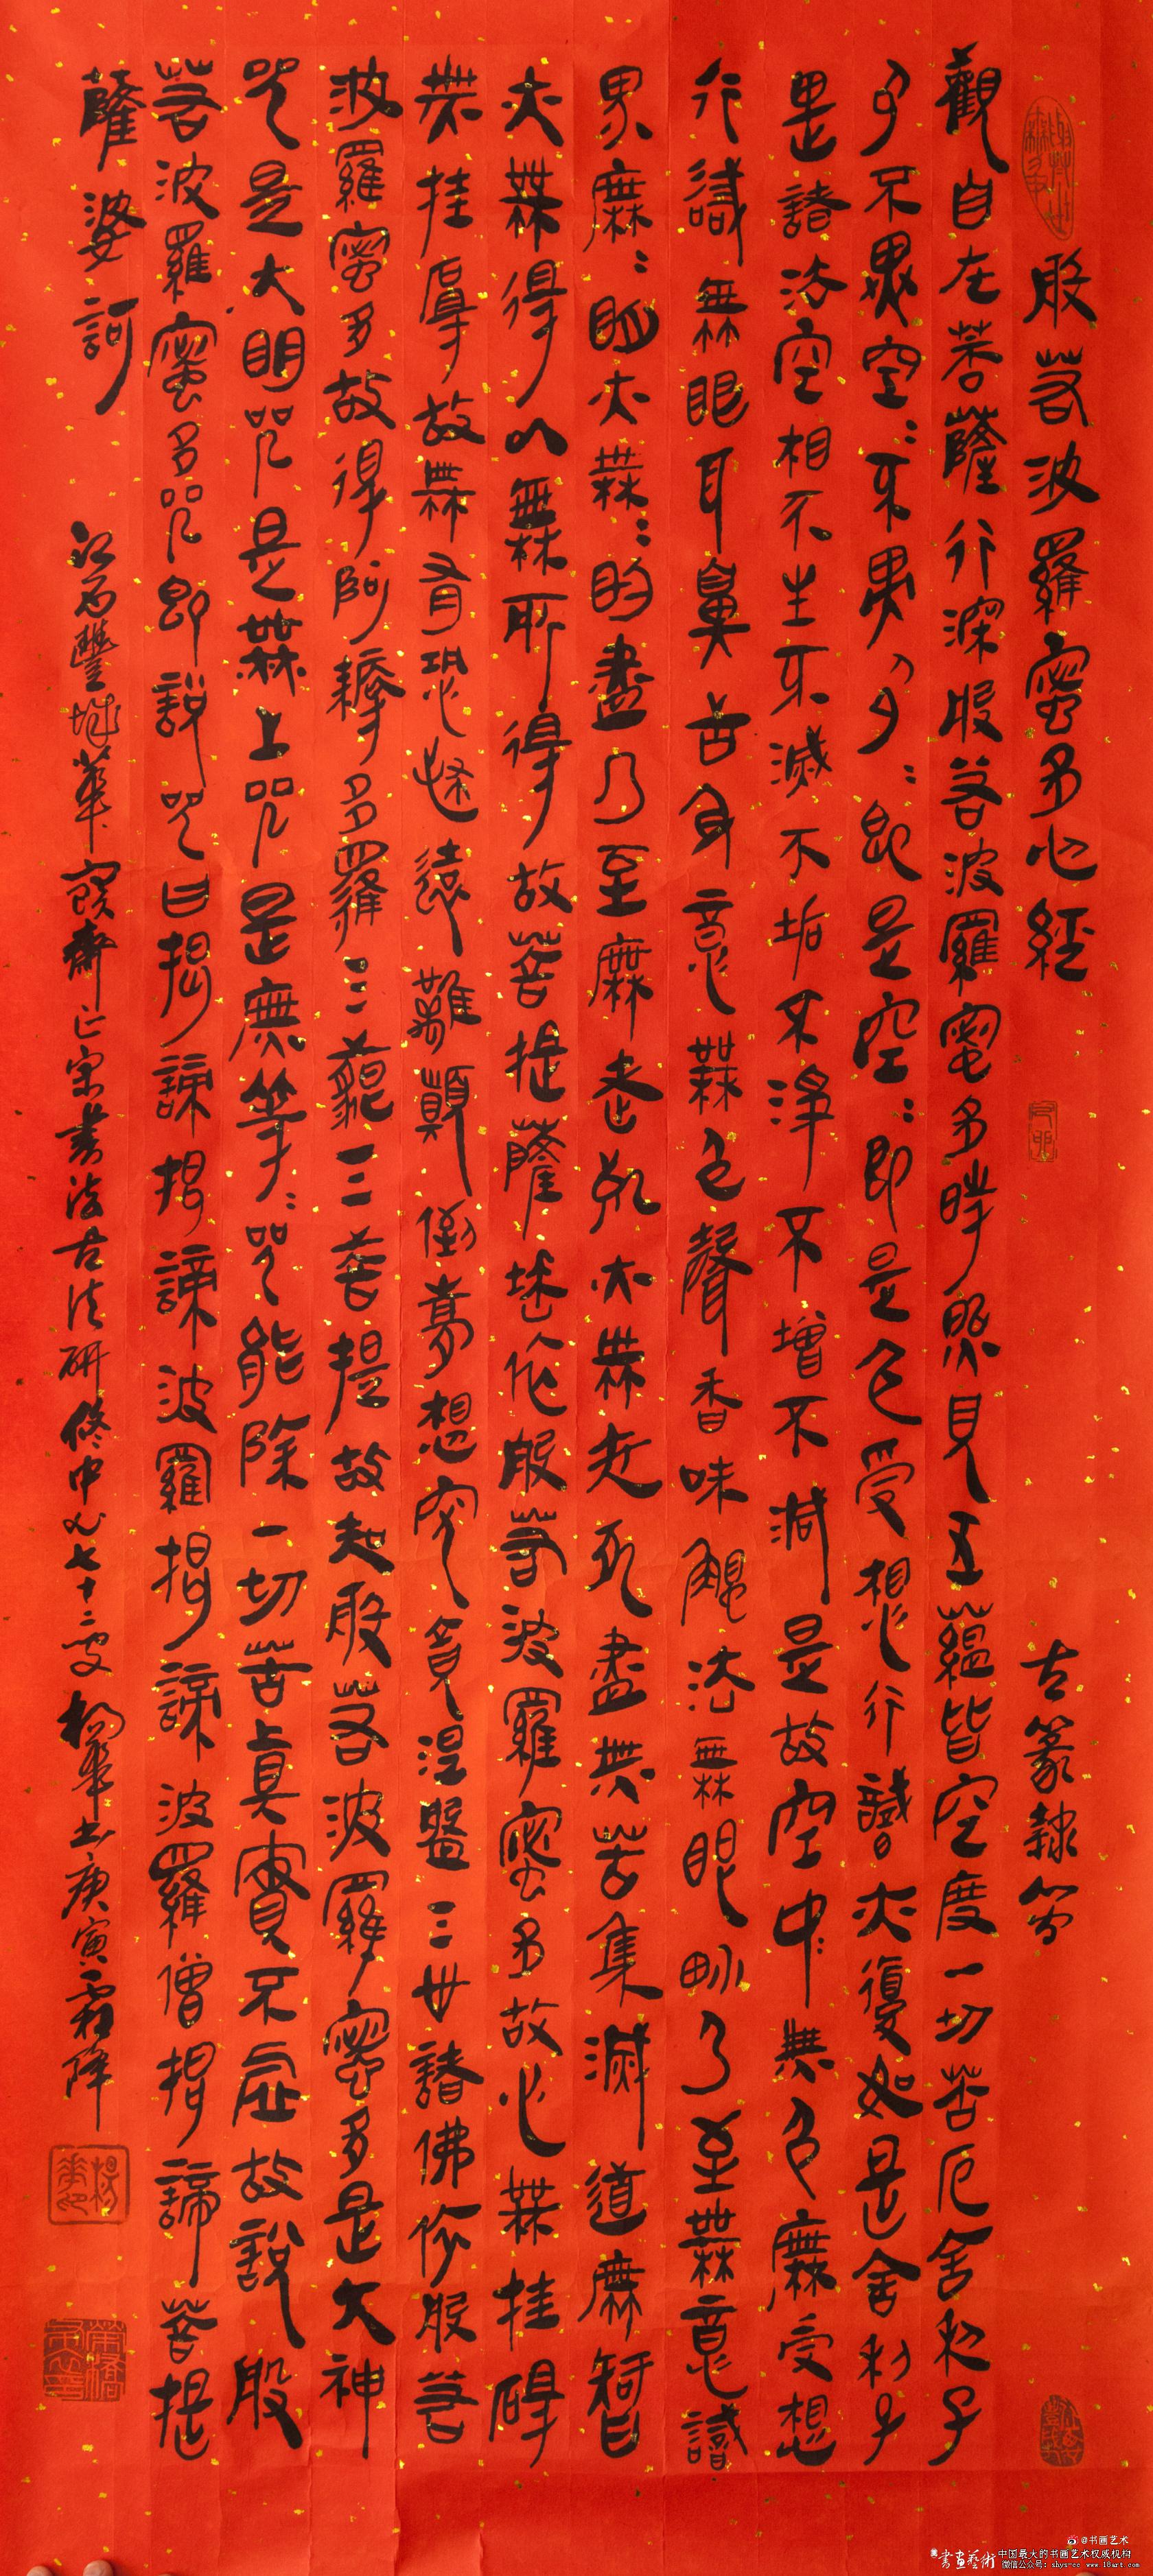 般若波羅蜜多心經
古篆隸
觀自在菩薩行深般若波羅蜜多時照見五蘊皆空度一切苦厄舍利子
色不異空〻不異色〻即是空〻即是色受想行識亦復如是舍利子
是諸法空相不生不滅不垢不淨不增不減是故空中無色無受想
行識無眼耳鼻舌身意無色聲香味觸法無眼界乃至無意識
界無〻明亦無〻明盡乃至無老死亦無老死盡無苦集滅道無智
亦無得以無所得故菩提薩埵依般若波羅蜜多故心無挂礙
無挂礙故無有恐怖遠離顛倒夢想究竟涅盤三世諸佛依般若
波羅蜜多故得阿耨多羅三藐三菩提故知般若波羅蜜多是大神
咒是大明咒是無上咒是無等〻咒能除一切苦真實不虛故說般
若波羅蜜多咒即說咒曰揭諦揭諦波羅揭諦波羅僧揭諦菩提
薩婆訶
江右豐城華齋正宗書法古法研修中心七十二叟楊華書庚寅霜降
@书画艺术
書畫藝術 中国最大的书画艺术权威机构
微信公众号: shys-cc www.18art.com